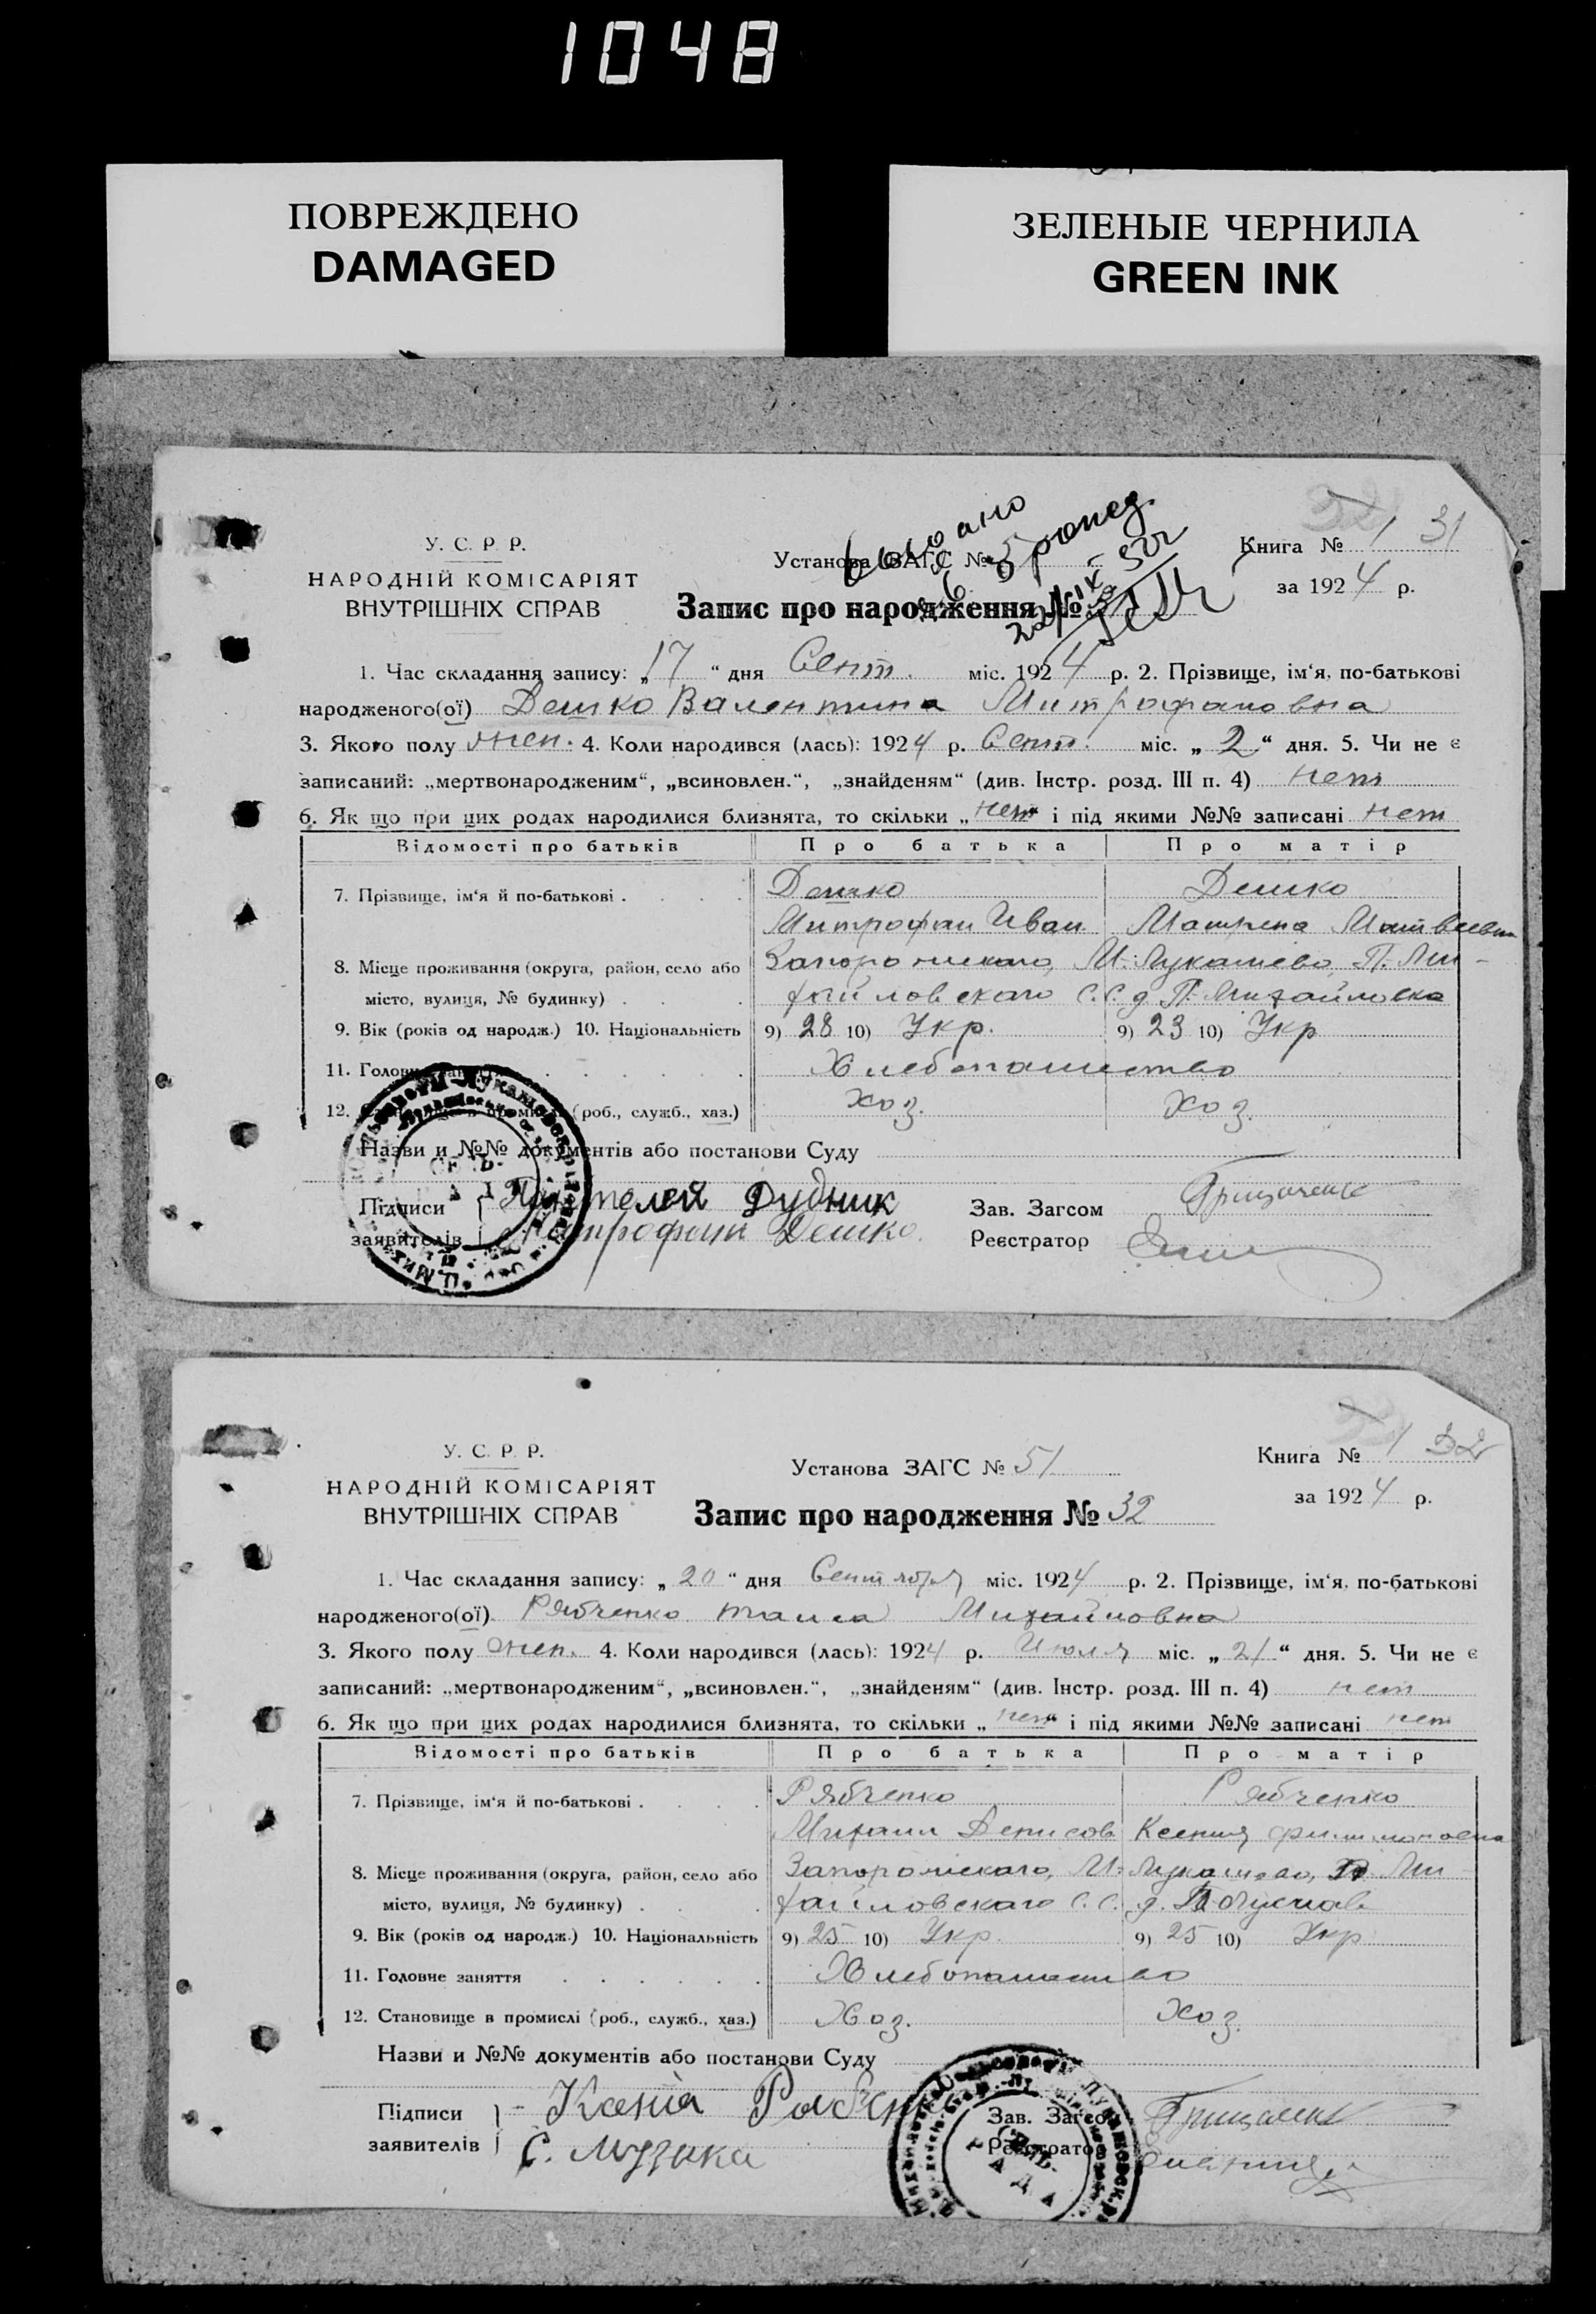 1048
ПОВРЕЖДЕНО
DAMAGED
ЗЕЛЕНЫЕ ЧЕРНИЛА
GREEN INK
У. С. Р. Р.
НАРОДНІЙ КОМІСАРІЯТ
ВНУТРІШНІХ СПРАВ
Установа ЗАГС №
Запис про народження №
Книга № 1 31
за 1924 р.
1. Час складання запису: „17“ дня Сент. міс. 1924 р. 2. Прізвище, ім‘я, по-батькові
народженого(ої) Дешко Валентина Митрофановна
3. Якого полу жен. 4. Коли народився (лась): 1924 р. Сент. міс. „2“ дня. 5. Чи не є
записаний: „мертвонародженим“, „всиновлен.“, „знайденям“ (див. Інстр. розд. III п. 4) нет
6. Як що при цих родах народилися близнята, то скільки „нет“ і під якими №№ записані нет
Відомості про батьків Про батька Про матір
7. Прізвище, ім‘я й по-батькові . . . . Дешко Дешко
Митрофан Иван. Матрена Матвеевн
8. Місце проживання (округа, район, село або Запорожскаго, М. Лукашево, П. Ми-
місто, вулиця, № будинку) . . . хайловскаго С.С. д. П. Михайловка
9. Вік (років од народж.) 10. Національність 9) 28 10) Укр. 9) 23 10) Укр
11. Головне заняття . . . . . . Хлебопашество
12. Становище в промислі (роб., служб., хаз.) хоз. хоз.
Назви и №№ документів або постанови Суду
Підписи Пантелей Дудник
заявителів Митрофан Дешко.
Зав. Загсом Грищенко
Реєстратор
У. С. Р. Р.
НАРОДНІЙ КОМІСАРІЯТ
ВНУТРІШНІХ СПРАВ
Установа ЗАГС № 51
Запис про народження № 32
Книга № 1 32
за 1924 р.
1. Час складання запису: „20“ дня Сентября міс. 1924 р. 2. Прізвище, ім‘я, по-батькові
народженого(ої) Рябченко Таиса Михайловна
3. Якого полу жен. 4. Коли народився (лась): 1924 р. Июля міс. „21“ дня. 5. Чи не є
записаний: „мертвонародженим“, „всиновлен.“, „знайденям“ (див. Інстр. розд. III п. 4) нет
6. Як що при цих родах народилися близнята, то скільки „нет“ і під якими №№ записані нет
Відомості про батьків Про батька Про матір
7. Прізвище, ім‘я й по-батькові . . . . Рябченко Рябченко
Михаил Денисов Ксения Филимоновна
8. Місце проживання (округа, район, село або Запорожскаго, М. Лукашево, П. Ми-
місто, вулиця, № будинку) . . . хайловскаго С.С. д.
9. Вік (років од народж.) 10. Національність 9) 25 10) Укр. 9) 25 10) Укр
11. Головне заняття . . . . . . Хлебопашество
12. Становище в промислі (роб., служб., хаз.) Хоз. Хоз.
Назви и №№ документів або постанови Суду
Підписи Ксенія
заявителів С. Музика
Зав. Загсом Грищенко
Реєстратор